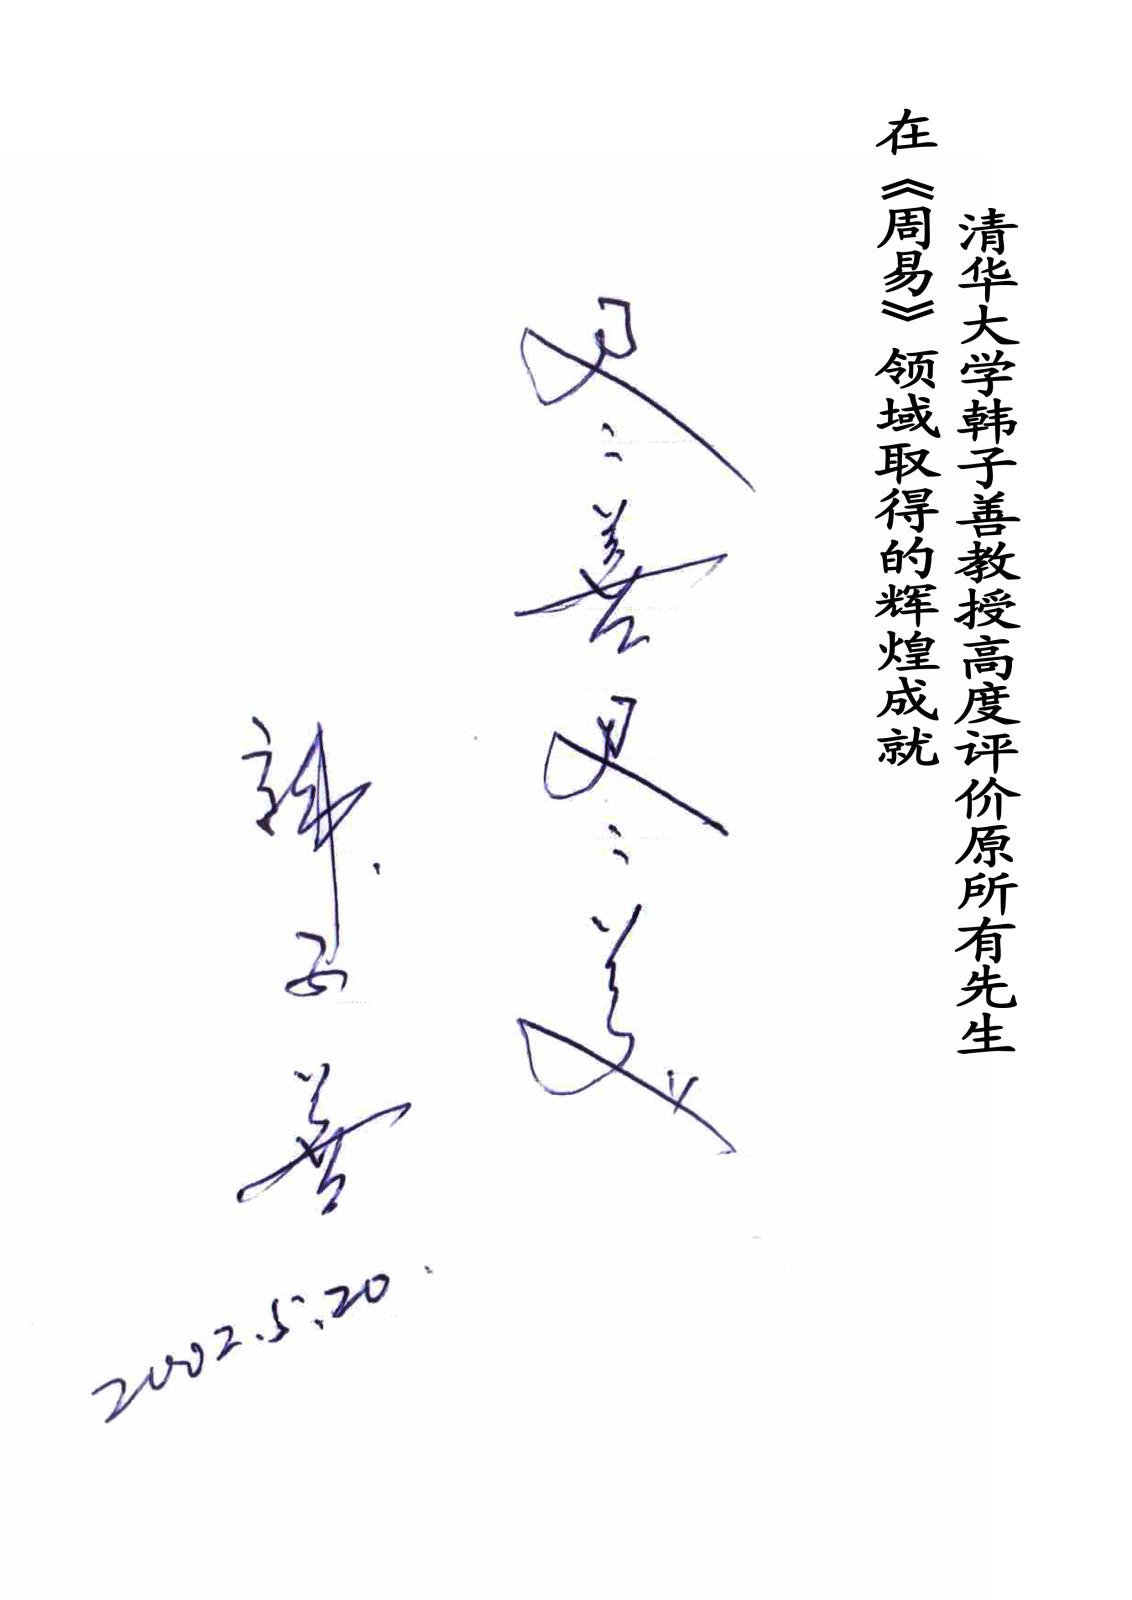 清华大学韩子善教授高度评价原所有先生
在《周易》领域取得的辉煌成就
尽善尽美
韩子善
2002.5.20.